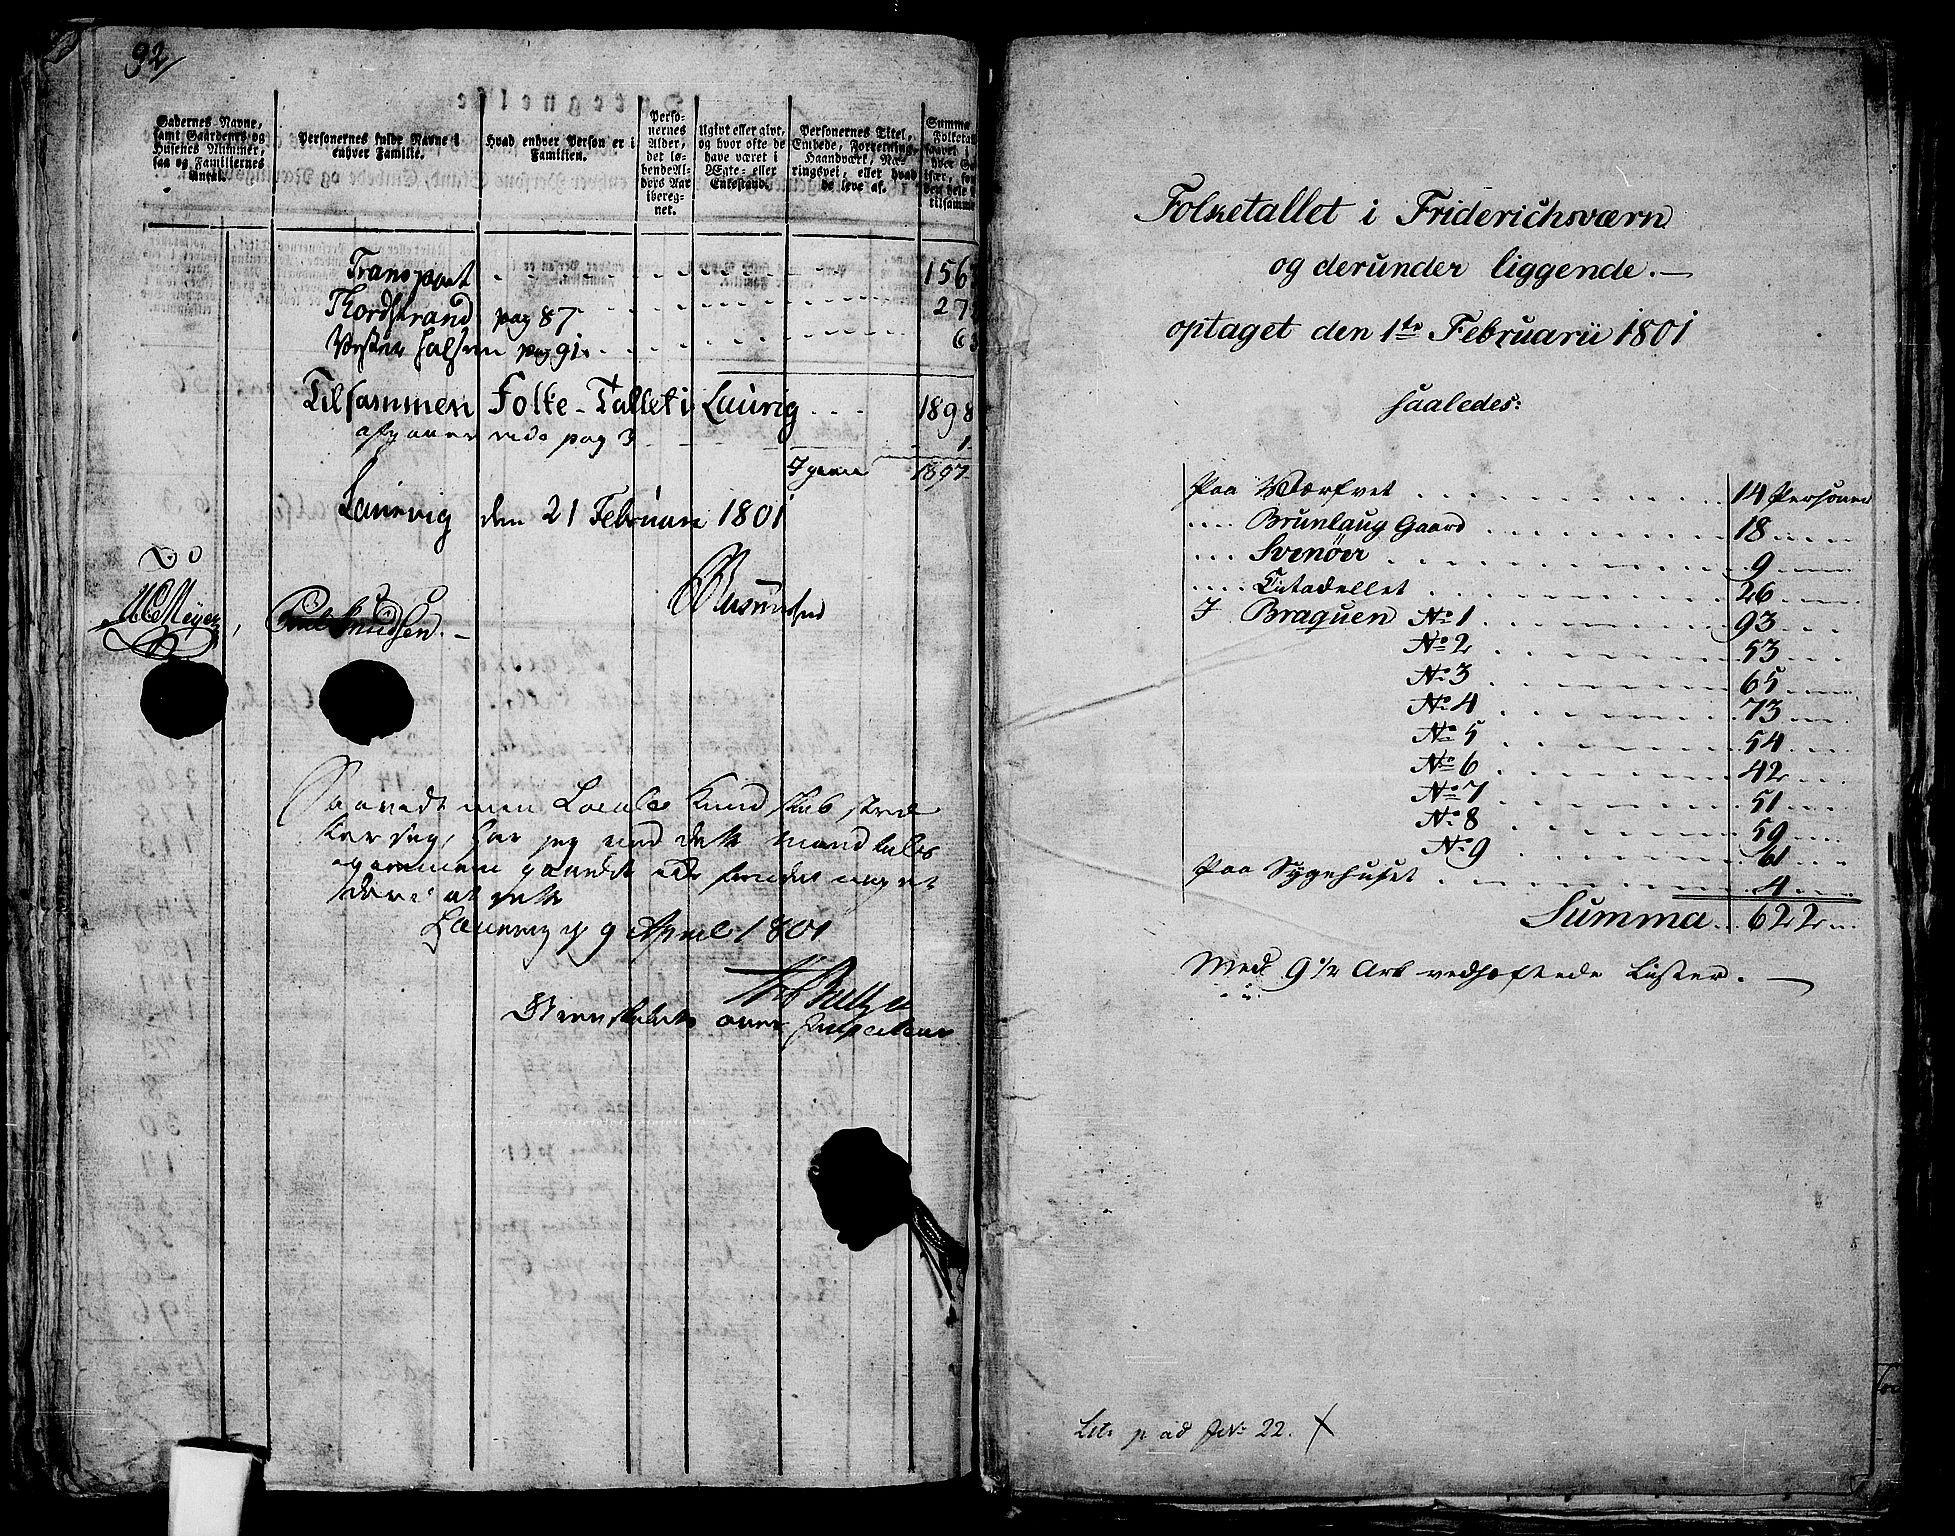 92/
Gadernes Navne, samt Gaardenes og Husenes Nummer, saa og Familiernes Antal.
Personernes fulde Navne i enhver Familie.
Hvad enhver Person er i Familien.
Personernes Alder, det løbende Alders Aar iberegnet.
Ugivt eller givt, og hvor ofte de have været i Ægte- eller Enkestand.
Personernes Titel, Embede, Forretning, Haandværk, Næringsvei, eller hvad de leve af.
Summa
Transport 156
Thordstrand pag 87 27
Vester Halsen pag 91 6
Tilsammen Folke-Tallet i Laurvig 1898
afgaaer vide pag 3 1
Igien 1897
Laurvig den 21 Februari 1801
Knudsen
Saavidt min Locale Kundskab
har jeg ved dette Mandtals
giennem
Laurvig 9 April 1801
over
Folketallet i Friderichsværn
og derunder liggende.
optaget den 1te Februarii 1801
saaledes:
Paa Værfvet 14 Personer
Brunlaug Gaard 18
Svenøer 9
Citadellet 26
I Braquen No 1 93
No 2 53
No 3 65
No 4 73
No 5 54
No 6 42
No 7 51
No 8 59
No 9 61
Paa Sygehuset 4
Summa 622
Med 9 1/2 Ark vedhæftede Lister.
22.